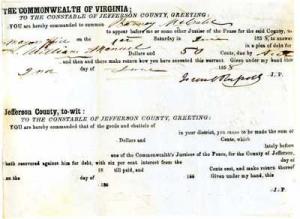 THE COMMONWEALTH OF VIRGINIA;
TO THE CONSTABLE OF JEFFERSON COUNTY, GREETING:
YOU are hereby commanded to summon
to appear before me or some other Justice of the Peace for the said County, on
the 1st Saturday in June 1858, to answer
William in a plea of debt for
Dollars and 50 Cents, due by
, and then and there make return how you have executed this warrant. Given under my hand this
2nd day of June 1858
, J. P.
Jefferson County, to-wit:
TO THE CONSTABLE OF JEFFERSON COUNTY, GREETING:
YOU are hereby commanded that of the goods and chattels of
in your district, you cause to be made the sum of
Dollars and Cents, which
lately before
one of the Commonwealth's Justices of the Peace, for the County of Jefferson,
hath recovered against him for debt, with six per cent interest from the day of
18 till paid, and Cents cost, and make return thereof
on the day of 185 Given under my hand, this
day of 185
, J. P.